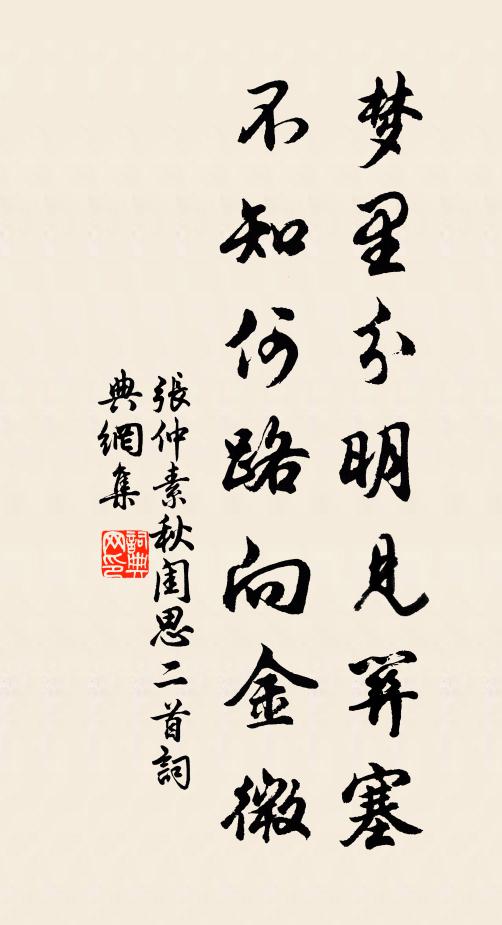 梦里分明見関塞
不知何路向金微
張仲素秋閨思二首詞
典網集
詞典
网印